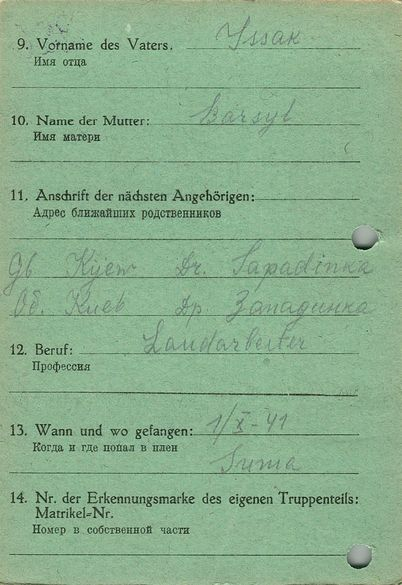 9. Vorname des Vaters. Issak
Имя отца
10. Name der Mutter: Barsyl
Имя матери
11. Anschrift der nächsten Angehörigen:
Адрес ближайших родственников
Gb Kijew Dr. Sapadinka
Об. Киев др Западинка
12. Beruf: Landarbeiter
Профессия
13. Wann und wo gefangen: 1/X-41
Когда и где попал в плен
Suma
14. Nr. der Erkennungsmarke des eigenen Truppenteils:
Matrikel-Nr.
Номер в собственной части